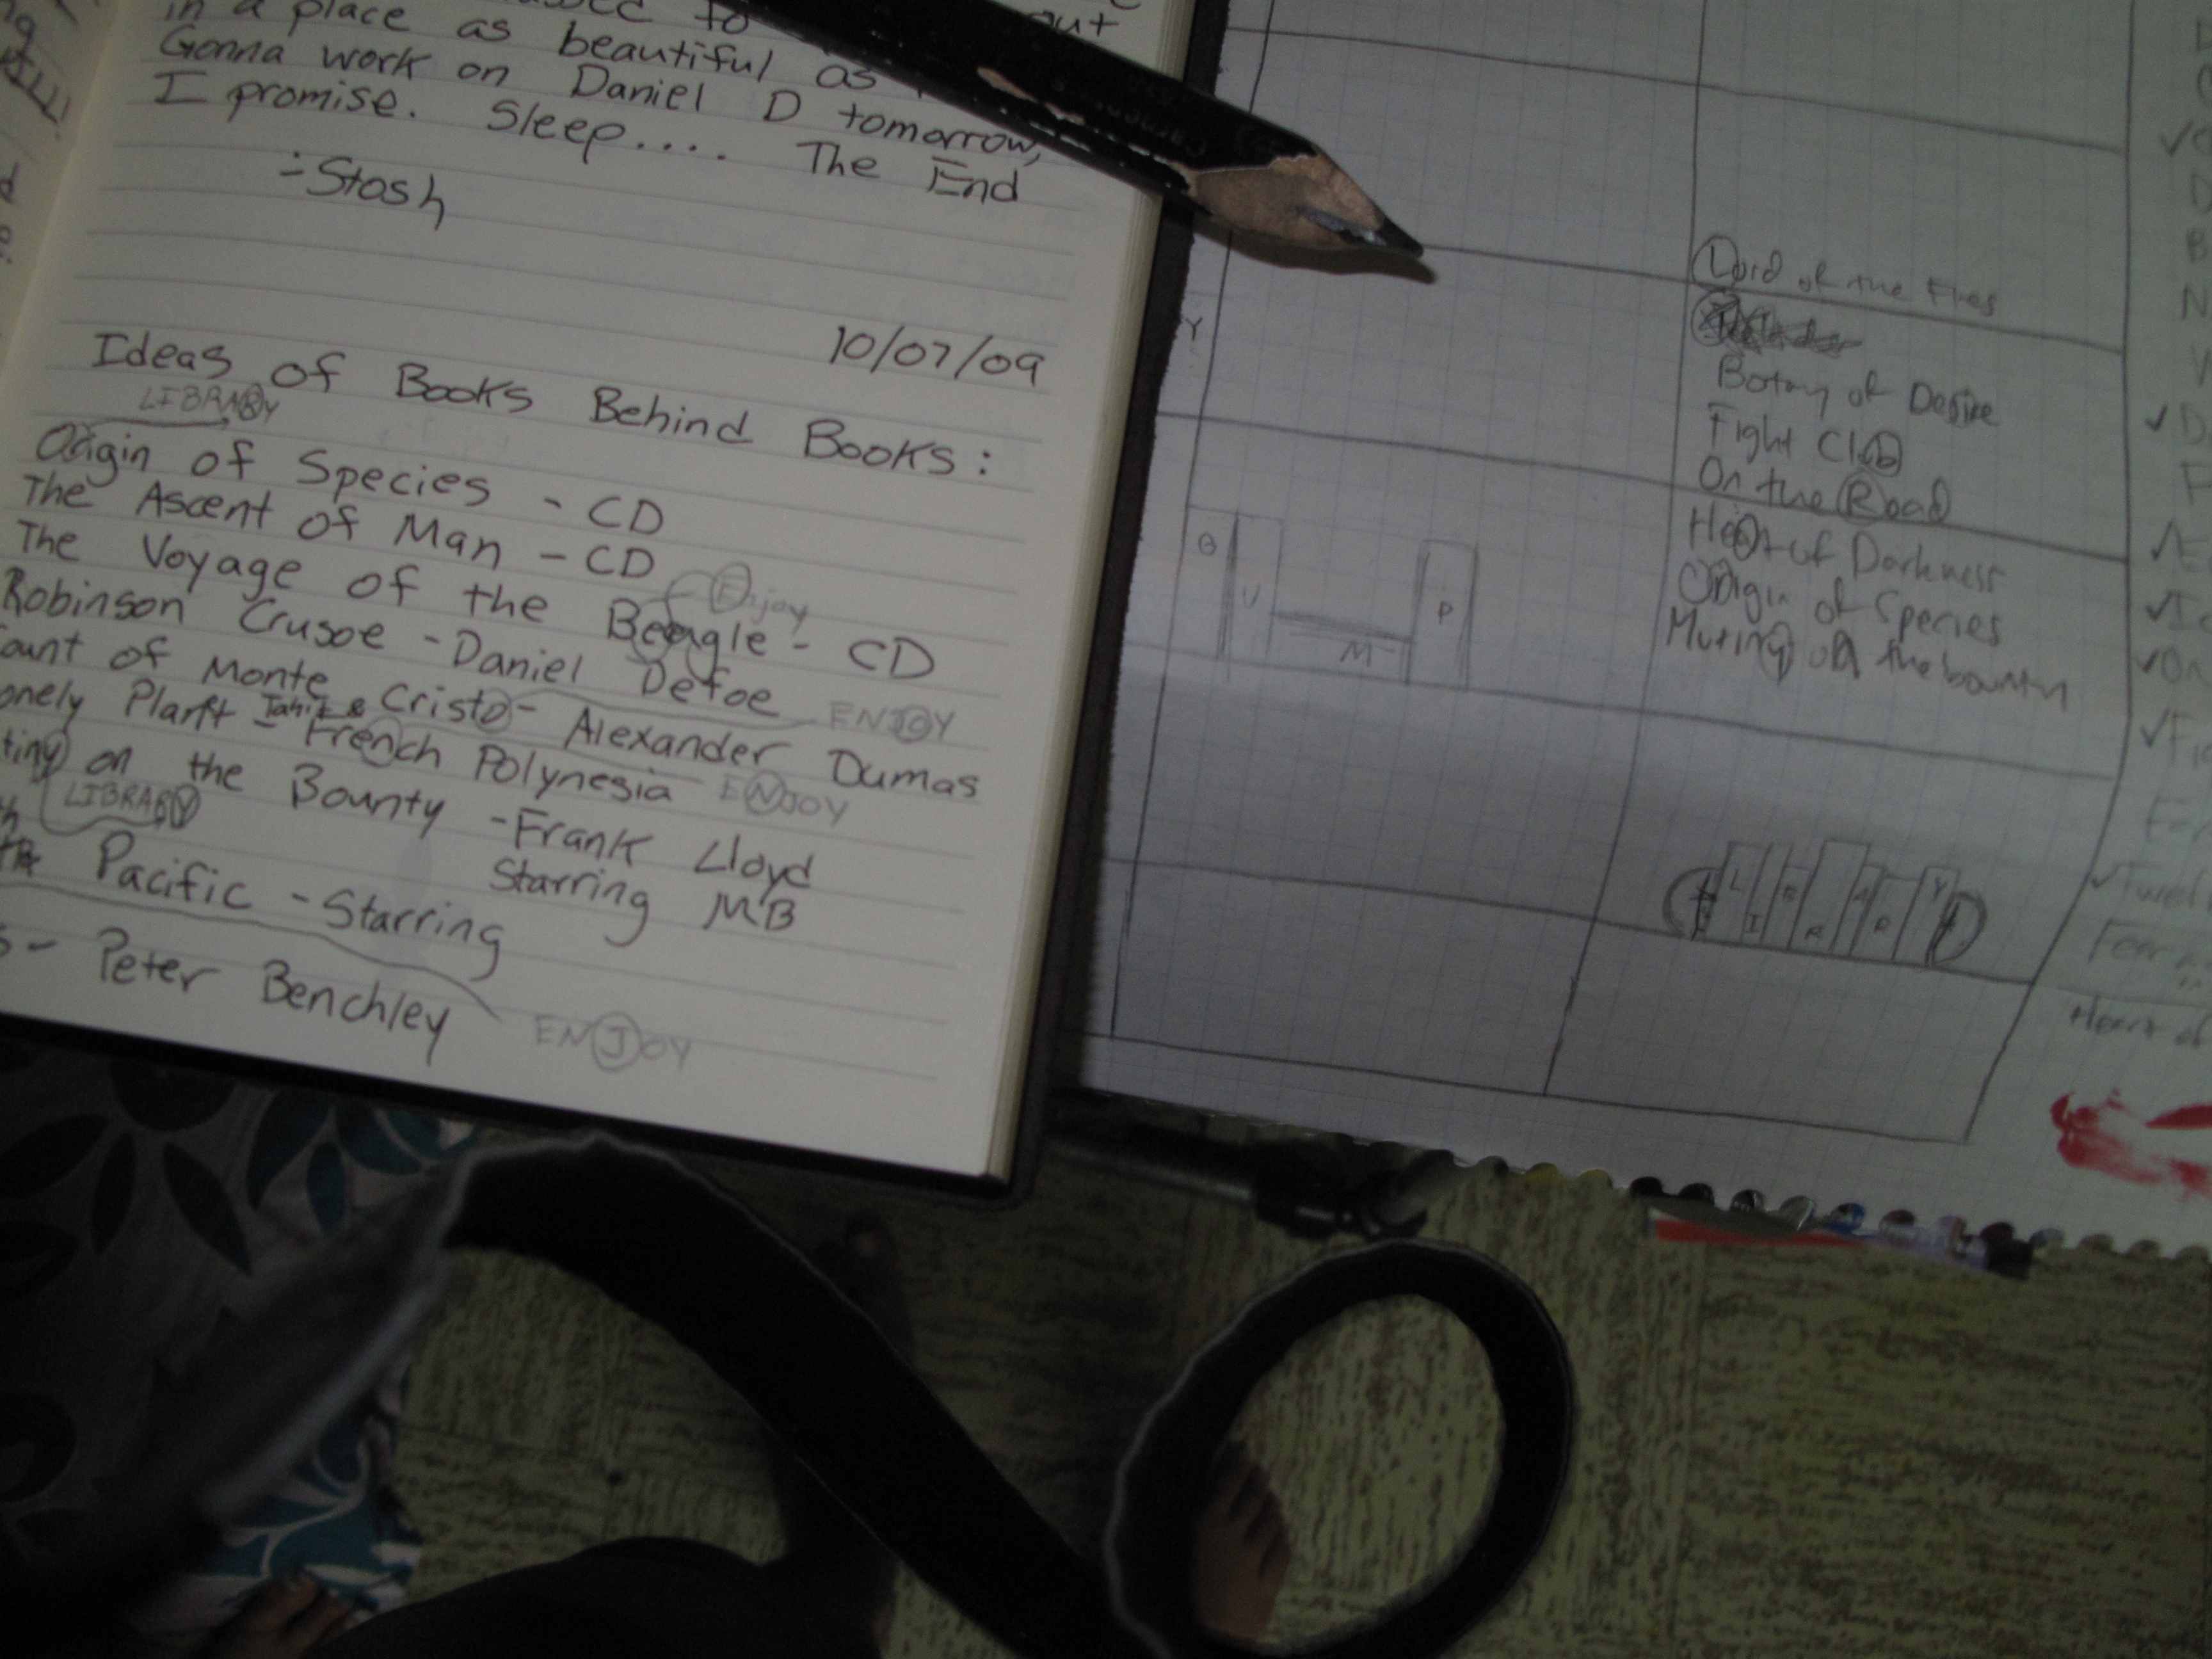 in a place as beautiful as
Gonna work on Daniel D tomorrow,
I promise. Sleep.... The End
-Stosh
10/07/09
Ideas of Books Behind Books:
LIBRARY
Origin of Species - CD
The Ascent of Man - CD
Enjoy
The Voyage of the Beagle - CD
Robinson Crusoe - Daniel Defoe
ENJOY
ount of Monte Cristo - Alexander Dumas
onely Planet - Tahiti & French Polynesia
ENJOY
tiny on the Bounty - Frank Lloyd
LIBRARY
Starring MB
Pacific - Starring
- Peter Benchley
ENJOY
Y
B V M P
Lord of the Flies
Botany of Desire
Fight Club
On the Road
Heart of Darkness
Origin of Species
Mutiny on the bounty
L I B R A R Y
Heart of